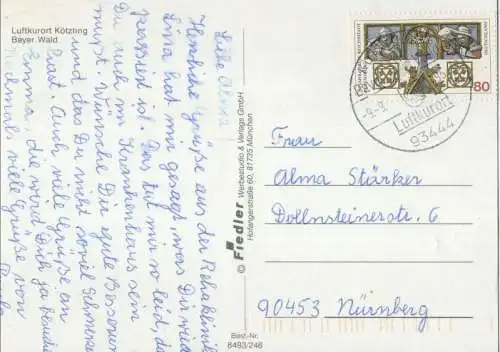 Luftkurort Kötzting
Bayer. Wald
Liebe Alma
Herzliche Grüße aus der Rehaklinik
Lina hat mir gesagt, was Dir wieder
passiert ist. Das tut mir so leid, das
Du auch im Krankenhaus sein
mußt. Wünsche Dir gute Besserung
und das Du nicht soviel Schmerzen
hast. Auch viele Grüße an
Emma, die wird Dich ja besuchen
Nochmals viele Grüße von
© Fiedler Werbestudio & Verlags GmbH
Hofangerstraße 60, 81735 München
Best.-Nr.
6493/246
80
-9.-9.
Luftkurort
93444
Frau
Alma Stärker
Dollnsteinerstr. 6
90453 Nürnberg